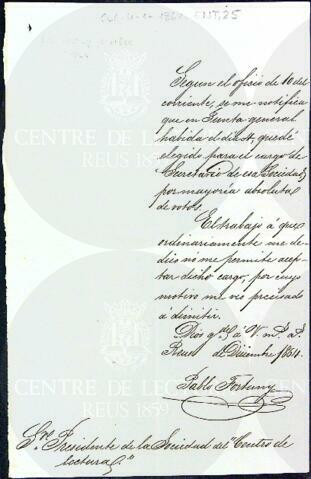 ENT, 25
Segun el oficio de 10 del
corriente, se me notifica
que en Junta general
habida el dia 4, quedé
elegido para el cargo de
Secretario de esa Sociedad
por mayoria absoluta
de votos.
El trabajo á que
ordinariamente me de-
dico nó me permite acep-
tar dicho cargo, por cuyo
motivo me veo precisado
á dimitir.
Dios g. á V. m. a.
Reus Diciembre 1884.
Pablo Fortuny
Sr. Presidente de la Sociedad del "Centro de
lectura".
CENTRE DE LECTURA
REUS 1859